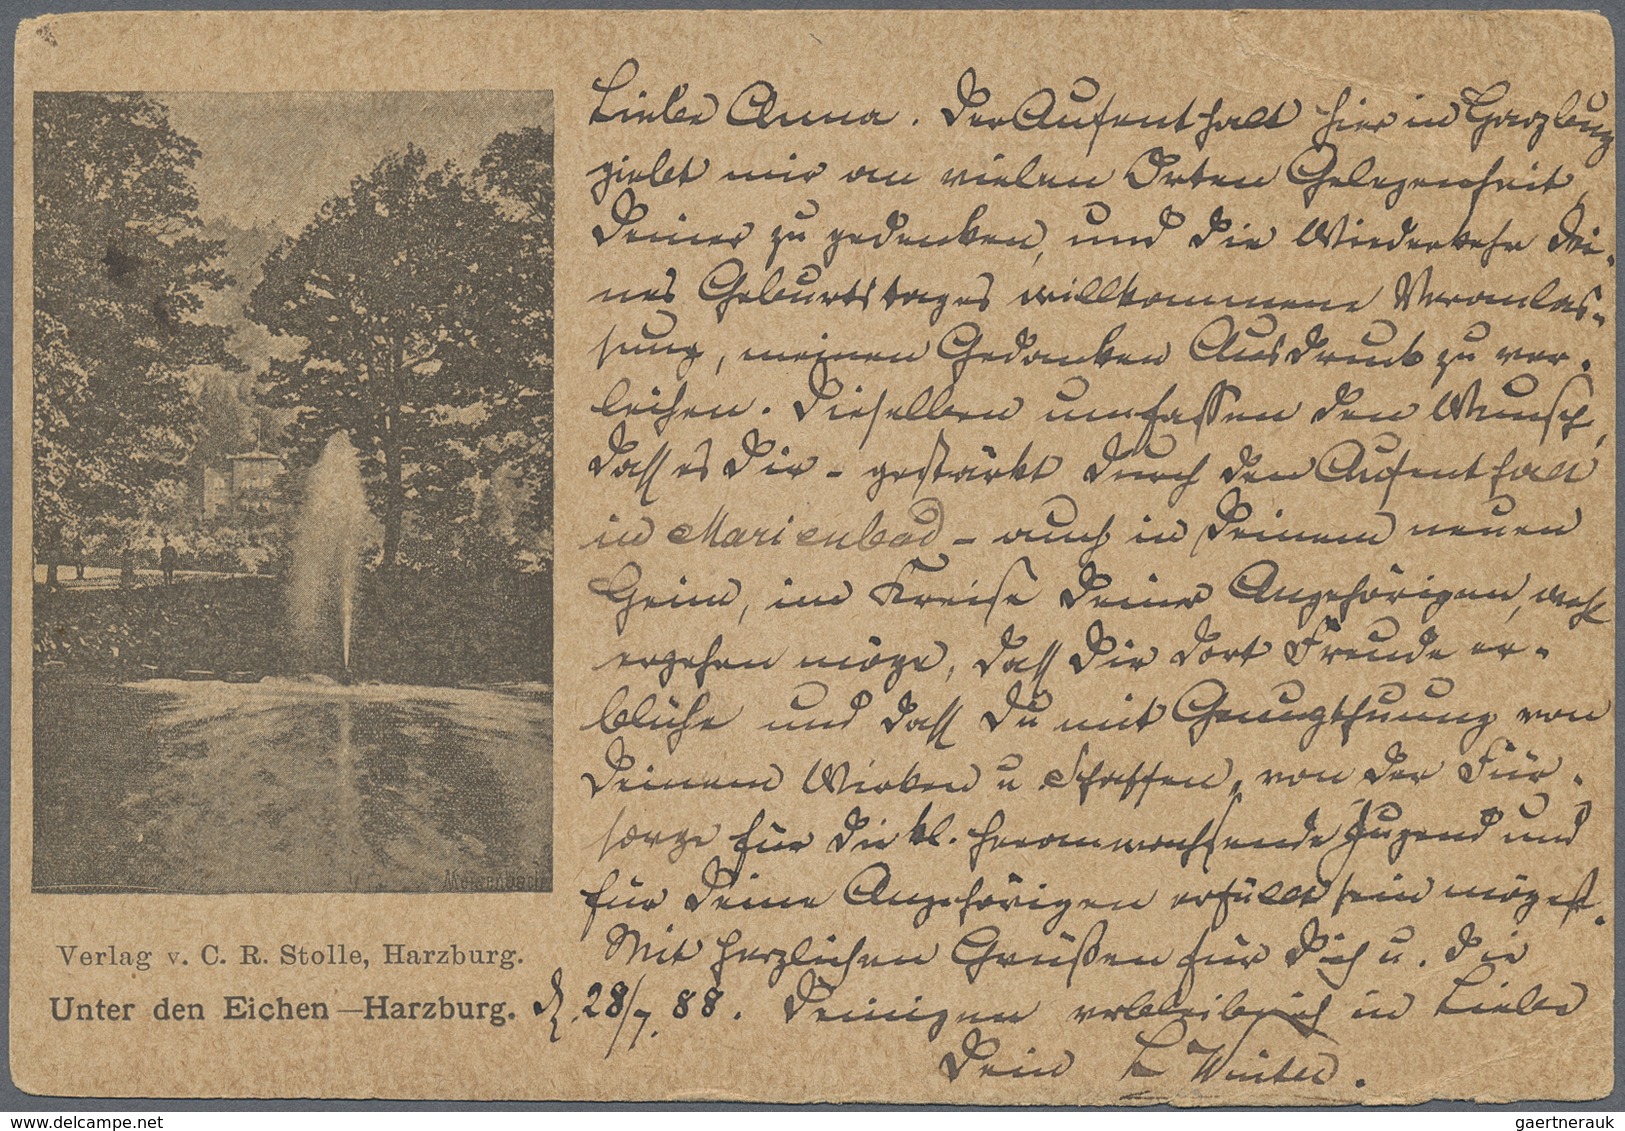 Liebe Anna. Der Aufenthalt hier in Harzburg
giebt mir an vielen Orten Gelegenheit,
Deiner zu gedenken, und die Wiederkehr Dei-
nes Geburtstages willkommene Veranlas-
sung, meinen Gedanken Ausdruck zu ver-
leihen. Dieselben umfassen den Wunsch,
dass es Dir - gestärkt durch den Aufenthalt
in Marienbad - auch in Deinem neuen
Heim, im Kreise Deiner Angehörigen, wohl
ergehen möge, dass Dir dort Freude er-
blühe und dass Du mit Genugthuung von
Deinem Wirken u Schaffen, von der Für-
sorge für die kl. heranwachsende Jugend und
für Deine Angehörigen erfüllt sein mögest.
Mit herzlichen Grüßen für Dich u. die
Deinigen verbleibe ich in Liebe
Dein L Winter.
Meisenbach
Verlag v. C. R. Stolle, Harzburg.
Unter den Eichen—Harzburg. d. 28/7. 88.
www.delcampe.net
gaertnerauk